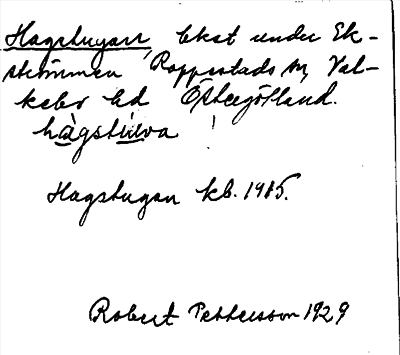 Hagstugan, bkst under Ek-
strömmen Rappestads sn, Val-
kebo hd Östergötland.
hågstuva
Hagstugan kb. 1915.
Robert Pettersson 1929